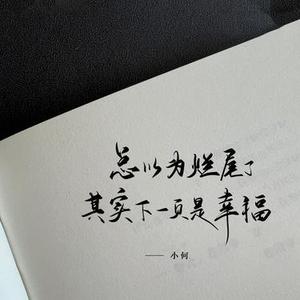 总以为烂尾了
其实下一页是幸福
—— 小何